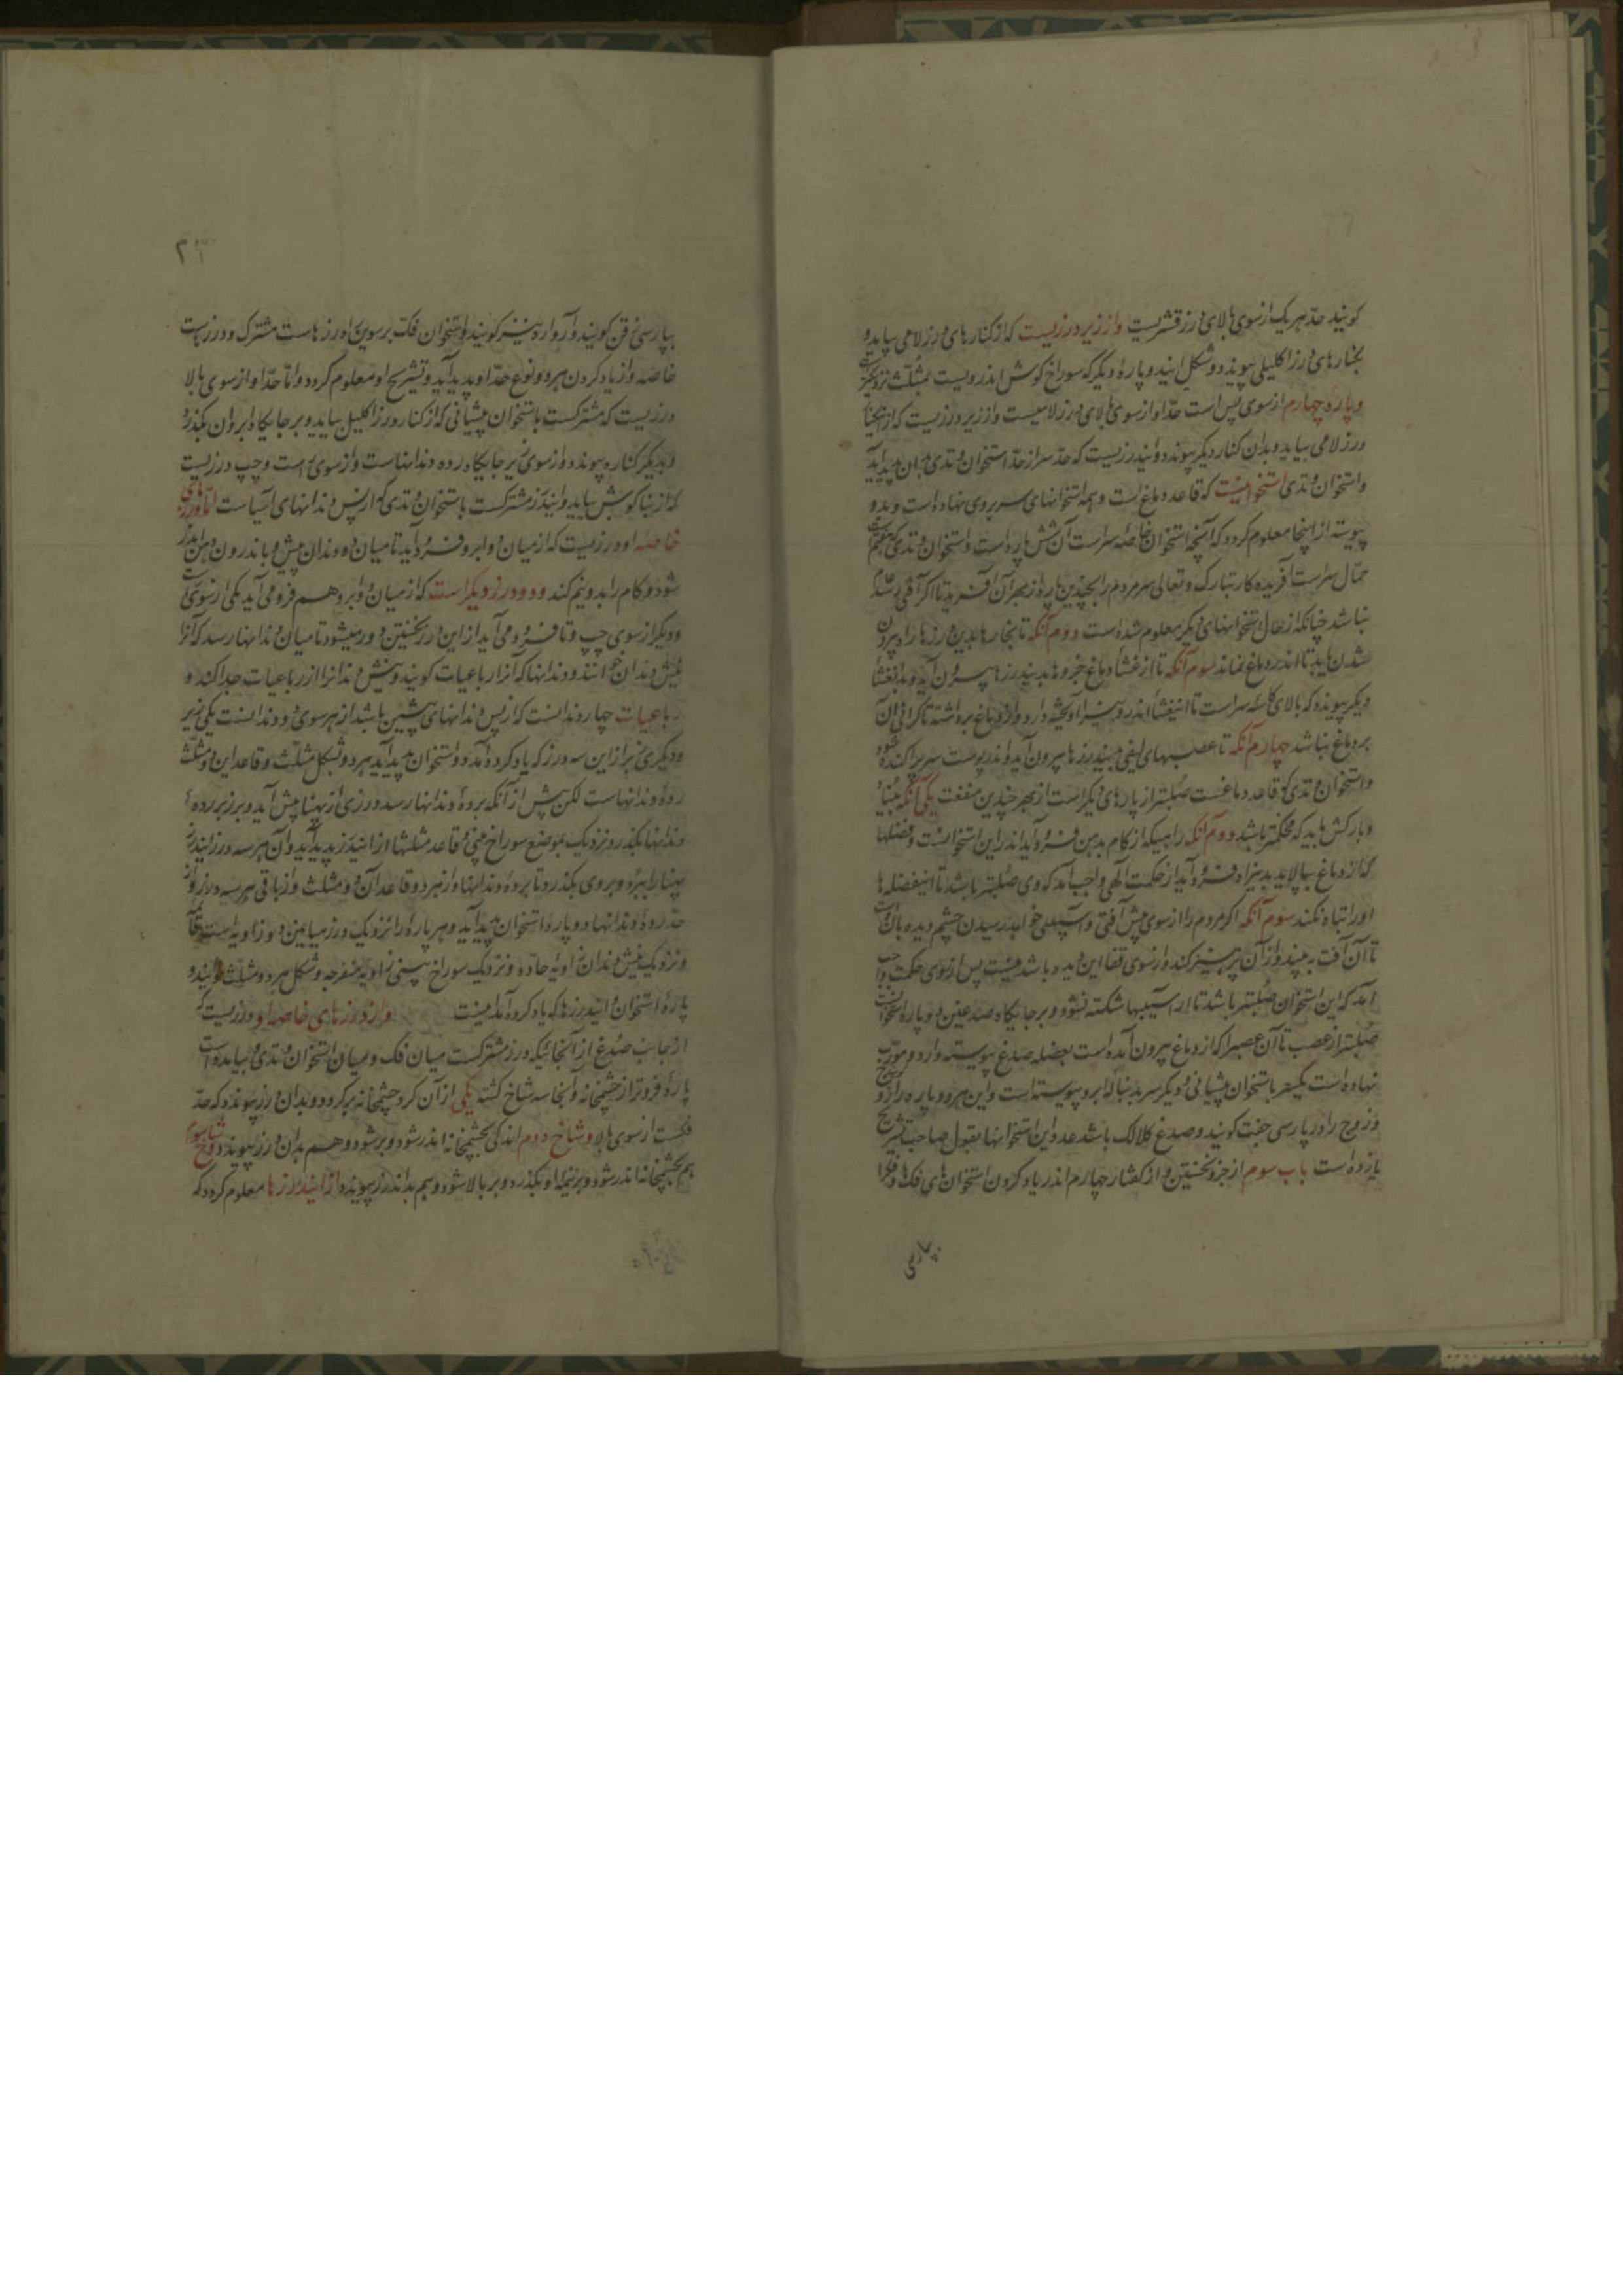 گویند حدّ هر یک از سوی بالای درز قشریست و از زیر درزیست که از کنارهای درز لامی بیاید و
بکنارهای درز اکلیلی پیوندد و شکل ایند و پاره دیگر که سوراخ گوش اندرویست بمثلّث نزدیکتر
و پاره چهارم از سوی پس است حدّ او از سوی بالای درز لامیست و از زیر درزیست که از
درز لامی بیاید و بدان کنار دیگر پیوندد و ایندرزیست که حدّ سر از حدّ استخوان وتدی بدان پدید آید
و استخوان وتدی استخوانیست که قاعد دماغ است و همه استخوانهای سر بر وی نهاده است و بدو
پیوسته از اینجا معلوم گردد که آنچه استخوان خاصّه سر است آن شش پاره است و استخوان وتدی که
حمّال سر است آفریده کار تبارک و تعالی سر مردم را بچندین پاره از بهر آن آفرید تا اگر آفتی رسد
نباشد چنانکه از حال استخوانهای دیگر معلوم شده است دوم آنکه تا بخارها بدین درزها راه بیرون
شدن یابد تا اندر دماغ نماند سوم آنکه تا از غشاء دماغ جزوها بدیندرزها بیرون آید و بدانغشا
دیگر پیوندد که بالای کاسه سر است تا اینغشا اندرونین را آویخته دارد و از دماغ برداشته تا گرانی آن
بر دماغ نباشد چهارم آنکه تا عصبهای لیفی بدیندرزها بیرون آید و اندر پوست سر پراکنده شود
و استخوان وتدی که قاعد دماغست صُلبتر از پارهای دیگر است از بهر چندین منفعت یکی آنکه بنیاد
و بارکش باید که محکمتر باشد دوم آنکه راهیکه از کام بدهن فرود آید اندر این استخوانست و فضلها
که از دماغ بپالاید بدینراه فرود آید از حکمت الهی واجب آمد که وی صُلبتر باشد تا اینفضله ها
او را تباه نکند سوم آنکه اگر مردم را از سوی پیش آفتی و آسیبی خواهد رسیدن چشم دیده بان است
تا آن آفت به بیند و از آن پرهیز کند و از سوی قفا این دیده باشد نیست پس از روی حکمت واجب
آمد که این استخوان صُلبتر باشد تا از آسیبها شکسته نشود و بر جایگاه صدغین دو پاره استخوانست
صُلبتر از عصب تا آن عصبرا که از دماغ بیرون آمده است بعضله صدغ پیوسته دارد و مورّب
نهاده است یکسر باستخوان پیشانی و دیگر سر بدنباله ابرو پیوسته است و این هر دو پاره را زوج
و زوج را در پارسی جفت گویند و صدغ کلالک باشد عدد این استخوانها بقول صاحب تشریح
یازده است باب سوم از جزو نخستین و از گفتار چهارم اندر یاد کردن استخوان های فک و فک را
پارسی
بپارسی فن گویند و آرواره نیز گویند و استخوان فکّ برسوین را درزهاست مشترک و درزهاست
خاصه و از یاد کردن هر دو نوع حدّ او پدید آید و تشریح او معلوم گردد و امّا حدّ او از سوی بالا
درزیست که مشترکست باستخوان پیشانی که از کناره درز اکلیل بیاید و بر جایگاه ابروان بگذرد
و بدیگر کناره پیوندد و از سوی زیر جایگاه رده دندانهاست و از سوی راست و چپ درزیست
که از بناگوش بیاید و ایندرز مشترکست باستخوان وتدی که از پس دندانهای آسیاست امّا درزهای
خاصه او درزیست که از میان دو ابرو فرود آید تا میان دو دندان پیش و باندرون دهان اندر
شود و کام را بدو نیم کند و دو درز دیگر است که از میان دو ابرو هم فرو می آید یکی از سوی راست
و دیگر از سوی چپ و تا فرود می آید از این درز نخستین دور میشود تا میان دندانها رسد که آنرا
نیش دندان خوانند و دندانها که آنرا رباعیات گویند و نیش دندانرا از رباعیات جدا کند و
رباعیات چهار دندانست که از پس دندانهای پیشین باشد از هر سوی دو دندانست یکی زیر
و دیگری زبر از این سه درز که یاد کرده آمد دو استخوان پدید آید هر دو بشکل مثلّث و قاعد این دو مثلّث
رده دندانهاست لکن پیش از آنکه برده دندانها رسد درزی از پهنا پیش آید و بر زبر رده
دندانها بگذرد نزدیک بموضع سوراخ بینی و قاعد مثلثها از ایندرز پدید آید و آن هر سه درز ایندرز
پهنا را ببرّد و بر وی بگذرد تا برده دندانها و از هر دو قاعد آن دو مثلث و از باقی هر سه درز و از
حدّ رده دندانها دو پاره استخوان پدید آید و هر پاره را نزدیک درز میانین دو زاویه است قائمه
و نزدیک نیش دندان زاویه حادّه و نزدیک سوراخ بینی زاویه منفرجه و شکل هر دو مثلّث
پاره استخوان ایندرزها که یاد کرده آمد اینست و از درزهای خاصه او درزیست که
از جانب صُدغ از آنجائیکه درز مشترکست میان فک و میان استخوان وتدی بیامده است
پاره فروتر از چشمخانه و آنجا سه شاخ گشته یکی از آن گرد چشمخانه برگردد و بدان درز پیوندد که حدّ
فکست از سوی بالا و شاخ دوم اندکی بچشمخانه اندر شود و بر شود و هم بدان درز پیوندد و شاخ سوم
هم بچشمخانه اندر شود و بر نیمه او بگذرد و بر بالا شود و هم بدان درز پیوندد از ایندرزها معلوم گردد که